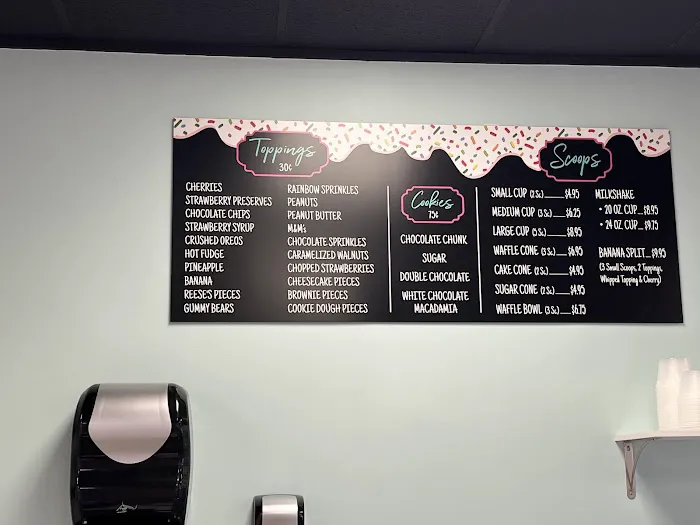 Toppings
30¢
CHERRIES
STRAWBERRY PRESERVES
CHOCOLATE CHIPS
STRAWBERRY SYRUP
CRUSHED OREOS
HOT FUDGE
PINEAPPLE
BANANA
REESE'S PIECES
GUMMY BEARS
RAINBOW SPRINKLES
PEANUTS
PEANUT BUTTER
M&M's
CHOCOLATE SPRINKLES
CARAMELIZED WALNUTS
CHOPPED STRAWBERRIES
CHEESECAKE PIECES
BROWNIE PIECES
COOKIE DOUGH PIECES
Cookies
75¢
CHOCOLATE CHUNK
SUGAR
DOUBLE CHOCOLATE
WHITE CHOCOLATE
MACADAMIA
Scoops
SMALL CUP (2 Sc.) $4.95
MEDIUM CUP (3 Sc.) $6.25
LARGE CUP (5 Sc.) $8.95
WAFFLE CONE (3 Sc.) $6.95
CAKE CONE (2 Sc.) $4.95
SUGAR CONE (2 Sc.) $4.95
WAFFLE BOWL (3 Sc.) $6.75
MILKSHAKE
• 20 OZ. CUP $8.95
• 24 OZ. CUP $9.75
BANANA SPLIT $9.95
(3 Small Scoops, 2 Toppings,
Whipped Topping & Cherry)